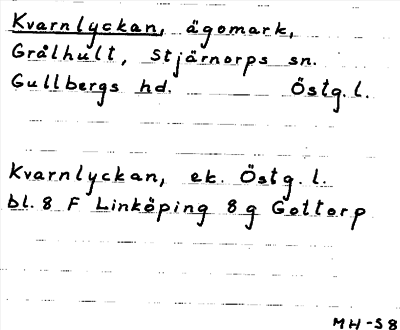 Kvarnlyckan, ägomark,
Grålhult, Stjärnorps sn.
Gullbergs hd. Östg. l.
Kvarnlyckan, ek. Östg. l.
bl. 8 F Linköping 8 g Gottorp
MH-58